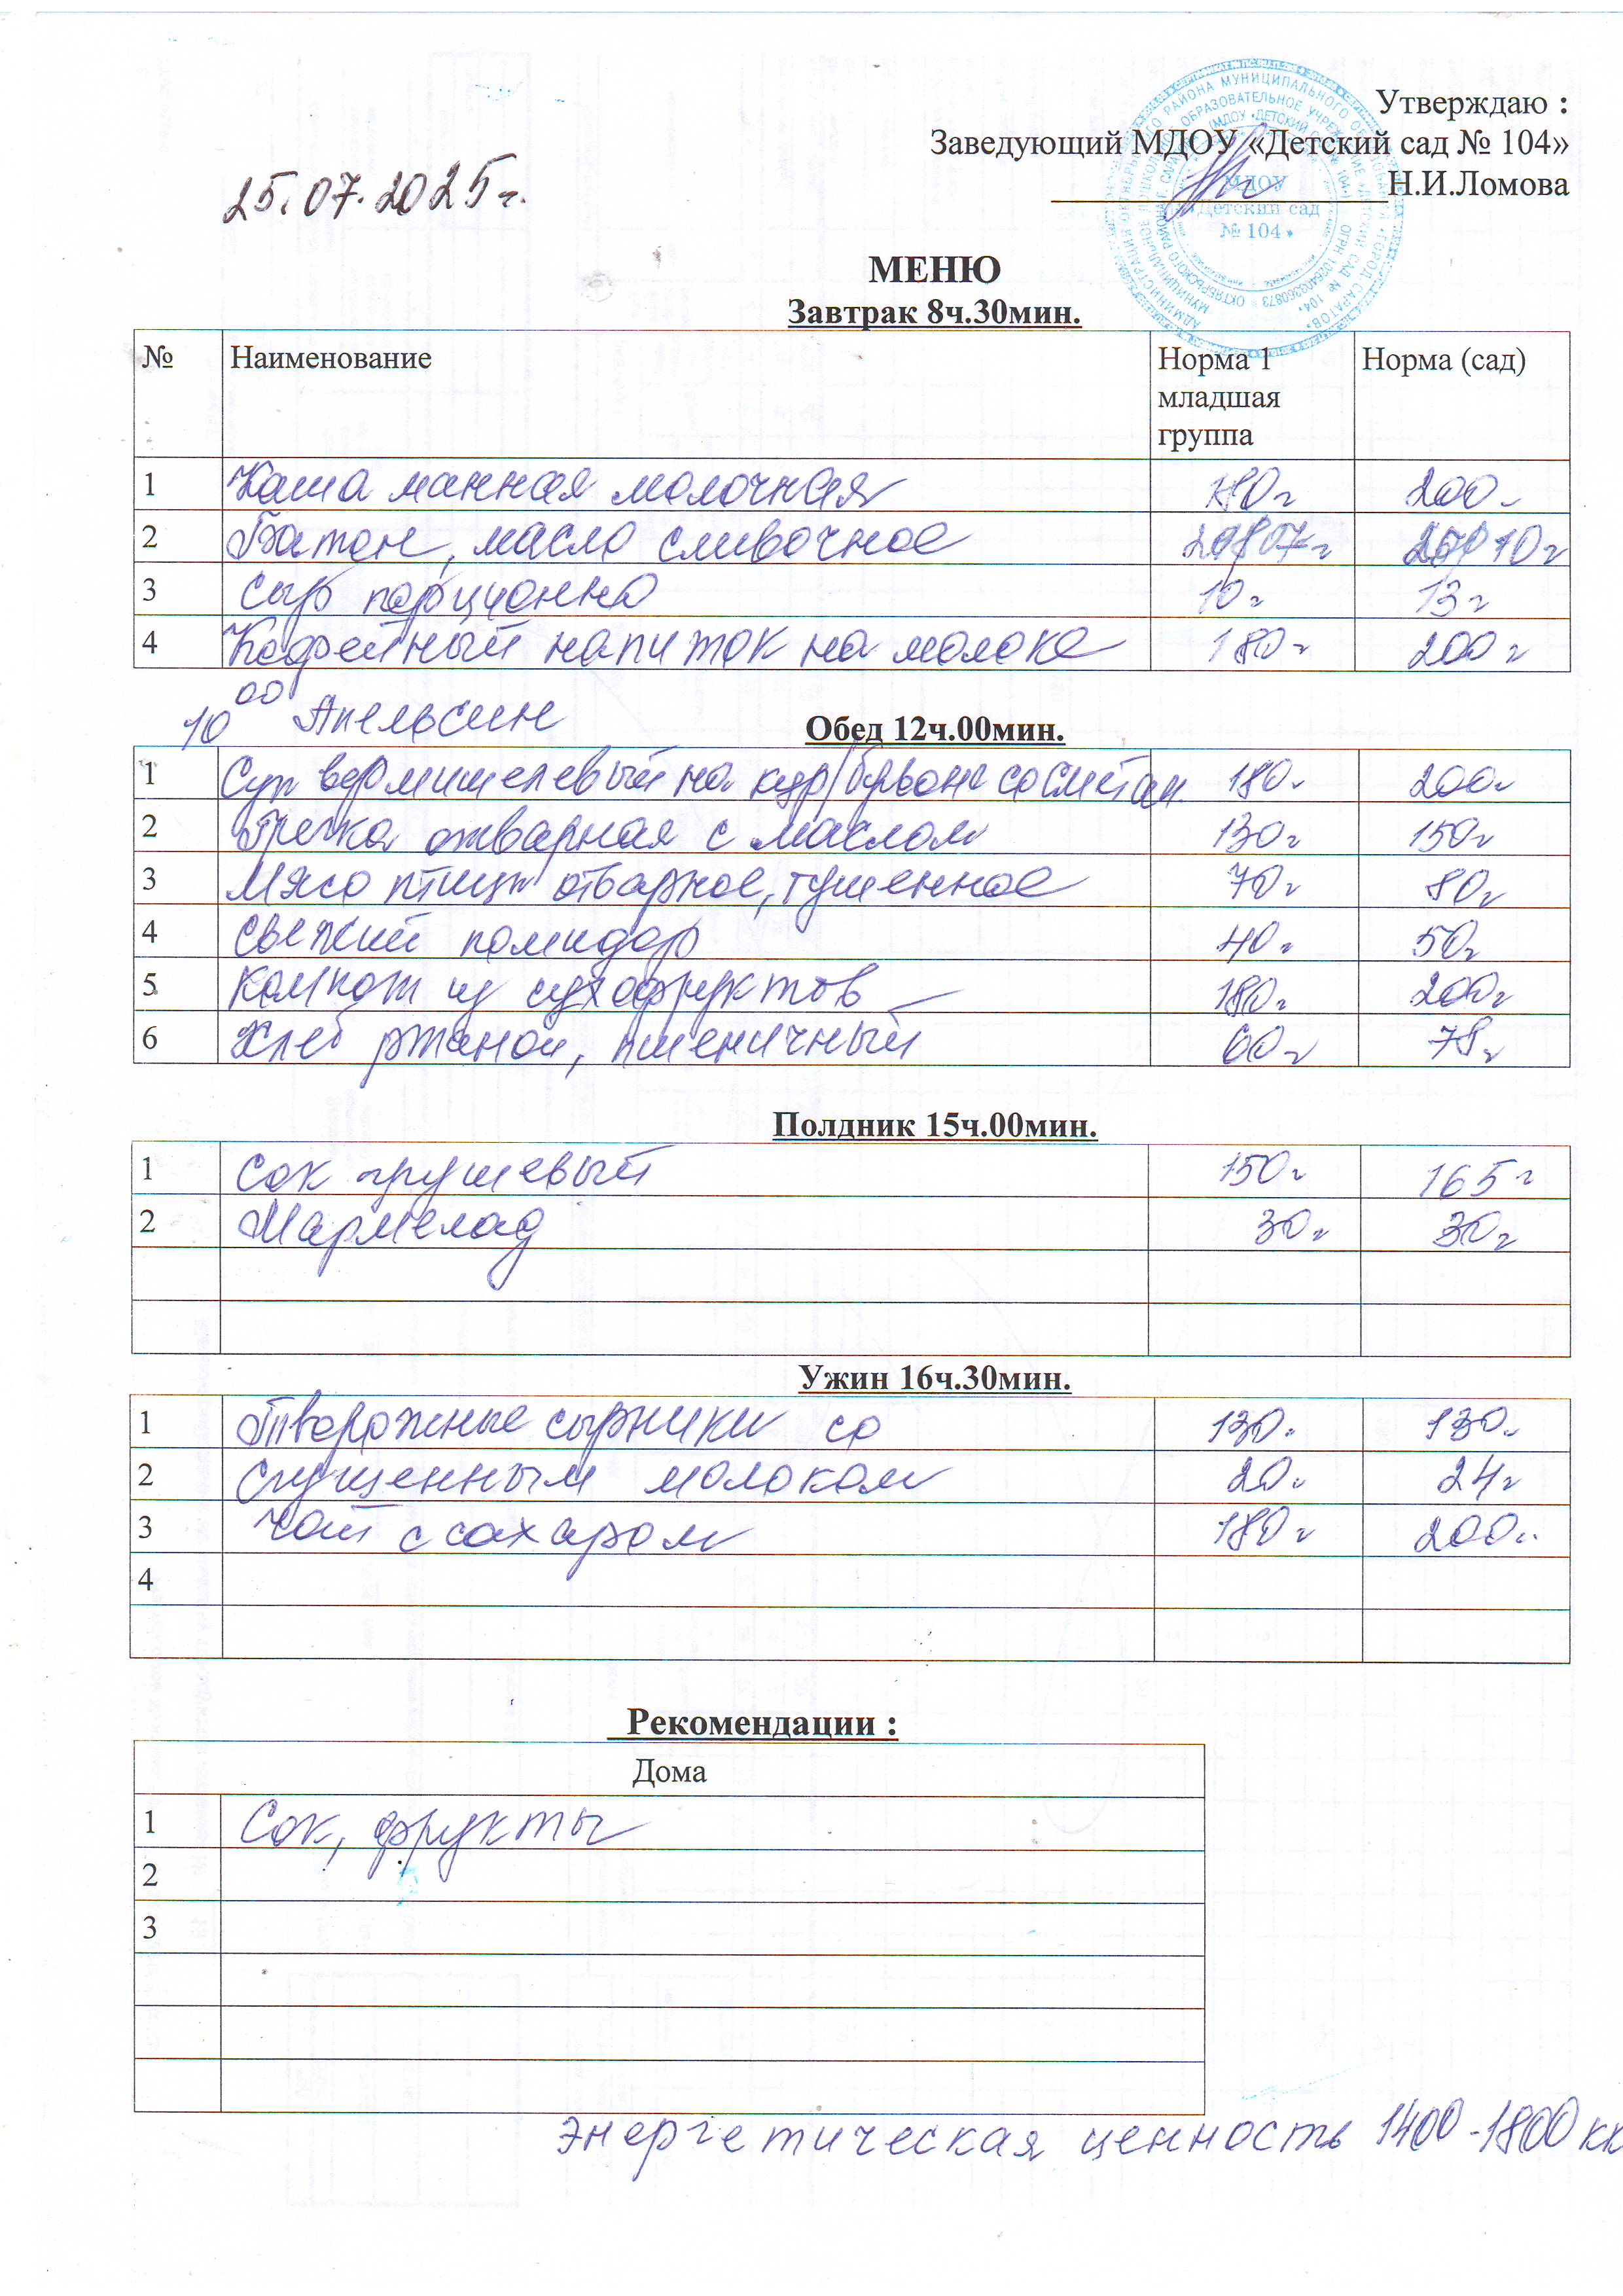 Утверждаю :
Заведующий МДОУ «Детский сад № 104»
Н.И.Ломова
МДОУ
Детский сад
№ 104
25.07.2025г.
МЕНЮ
Завтрак 8ч.30мин.
№ Наименование Норма 1 младшая группа Норма (сад)
1 Каша манная молочная 200
2 Батон, масло сливочное
3 Сыр порционно 10г 13г
4 Кофейный напиток на молоке 180г 200г
10 00 Апельсин
Обед 12ч.00мин.
1 Суп вермишелевый на кур/бульоне со сметан. 180г 200г
2 Гречка отварная с маслом 130г 150г
3 Мясо птицы отварное, тушенное 70г 80г
4 Свежий помидор 40г 50г
5 Компот из сухофруктов 180г 200г
6 Хлеб ржаной, пшеничный 60г 78г
Полдник 15ч.00мин.
1 Сок грушевый 150г 165г
2 Мармелад 30г 30г
Ужин 16ч.30мин.
1 Творожные сырники со 130г 130г
2 сгущенным молоком 20г 24г
3 Чай с сахаром 180г 200г
4
Рекомендации :
Дома
1 Сок, фрукты
2
3
Энергетическая ценность 1400-1800 кк